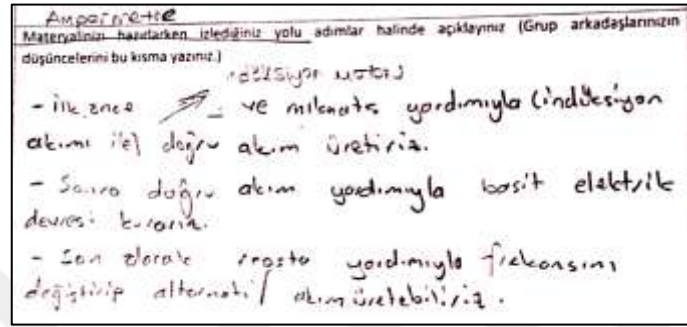 Ampermetre
Materyalinizi hazırlarken izlediğiniz yolu adımlar halinde açıklayınız (Grup arkadaşlarınızın
düşüncelerini bu kısma yazınız.)
- ilk önce ve mıknatıs yardımıyla (indüksiyon
akımı ile) doğru akım üretiriz.
- Sonra doğru akım yardımıyla basit elektrik
devresi kurarız.
- Son olarak yardımıyla frekansını
değiştirip alternatif akım üretebiliriz.